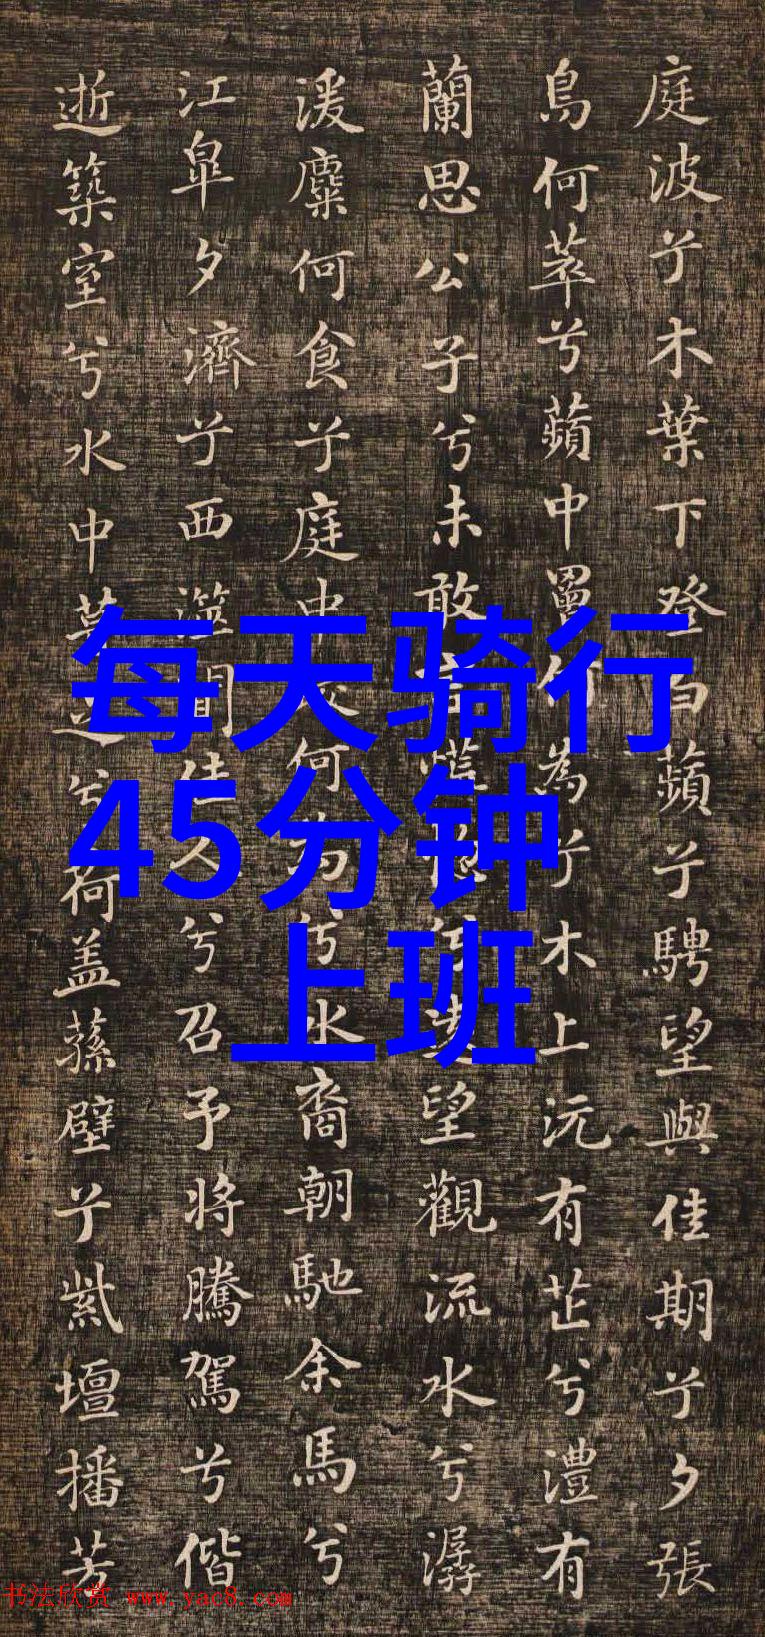 庭波兮木葉下登白蘋兮騁望與佳期兮夕張
鳥何萃兮蘋中罾何為兮木上沅有芷兮澧有
蘭思公子兮未敢言慌兮遠望觀流水兮潺
湲麋何食兮庭中何為兮水裔朝馳余馬兮
江皐夕濟兮西澨聞佳人兮召予將騰駕兮偕
逝築室兮水中葺之兮荷盖蓀壁兮紫壇播芳
每天骑行
45分钟
上班
书法欣赏 www.yac8.com